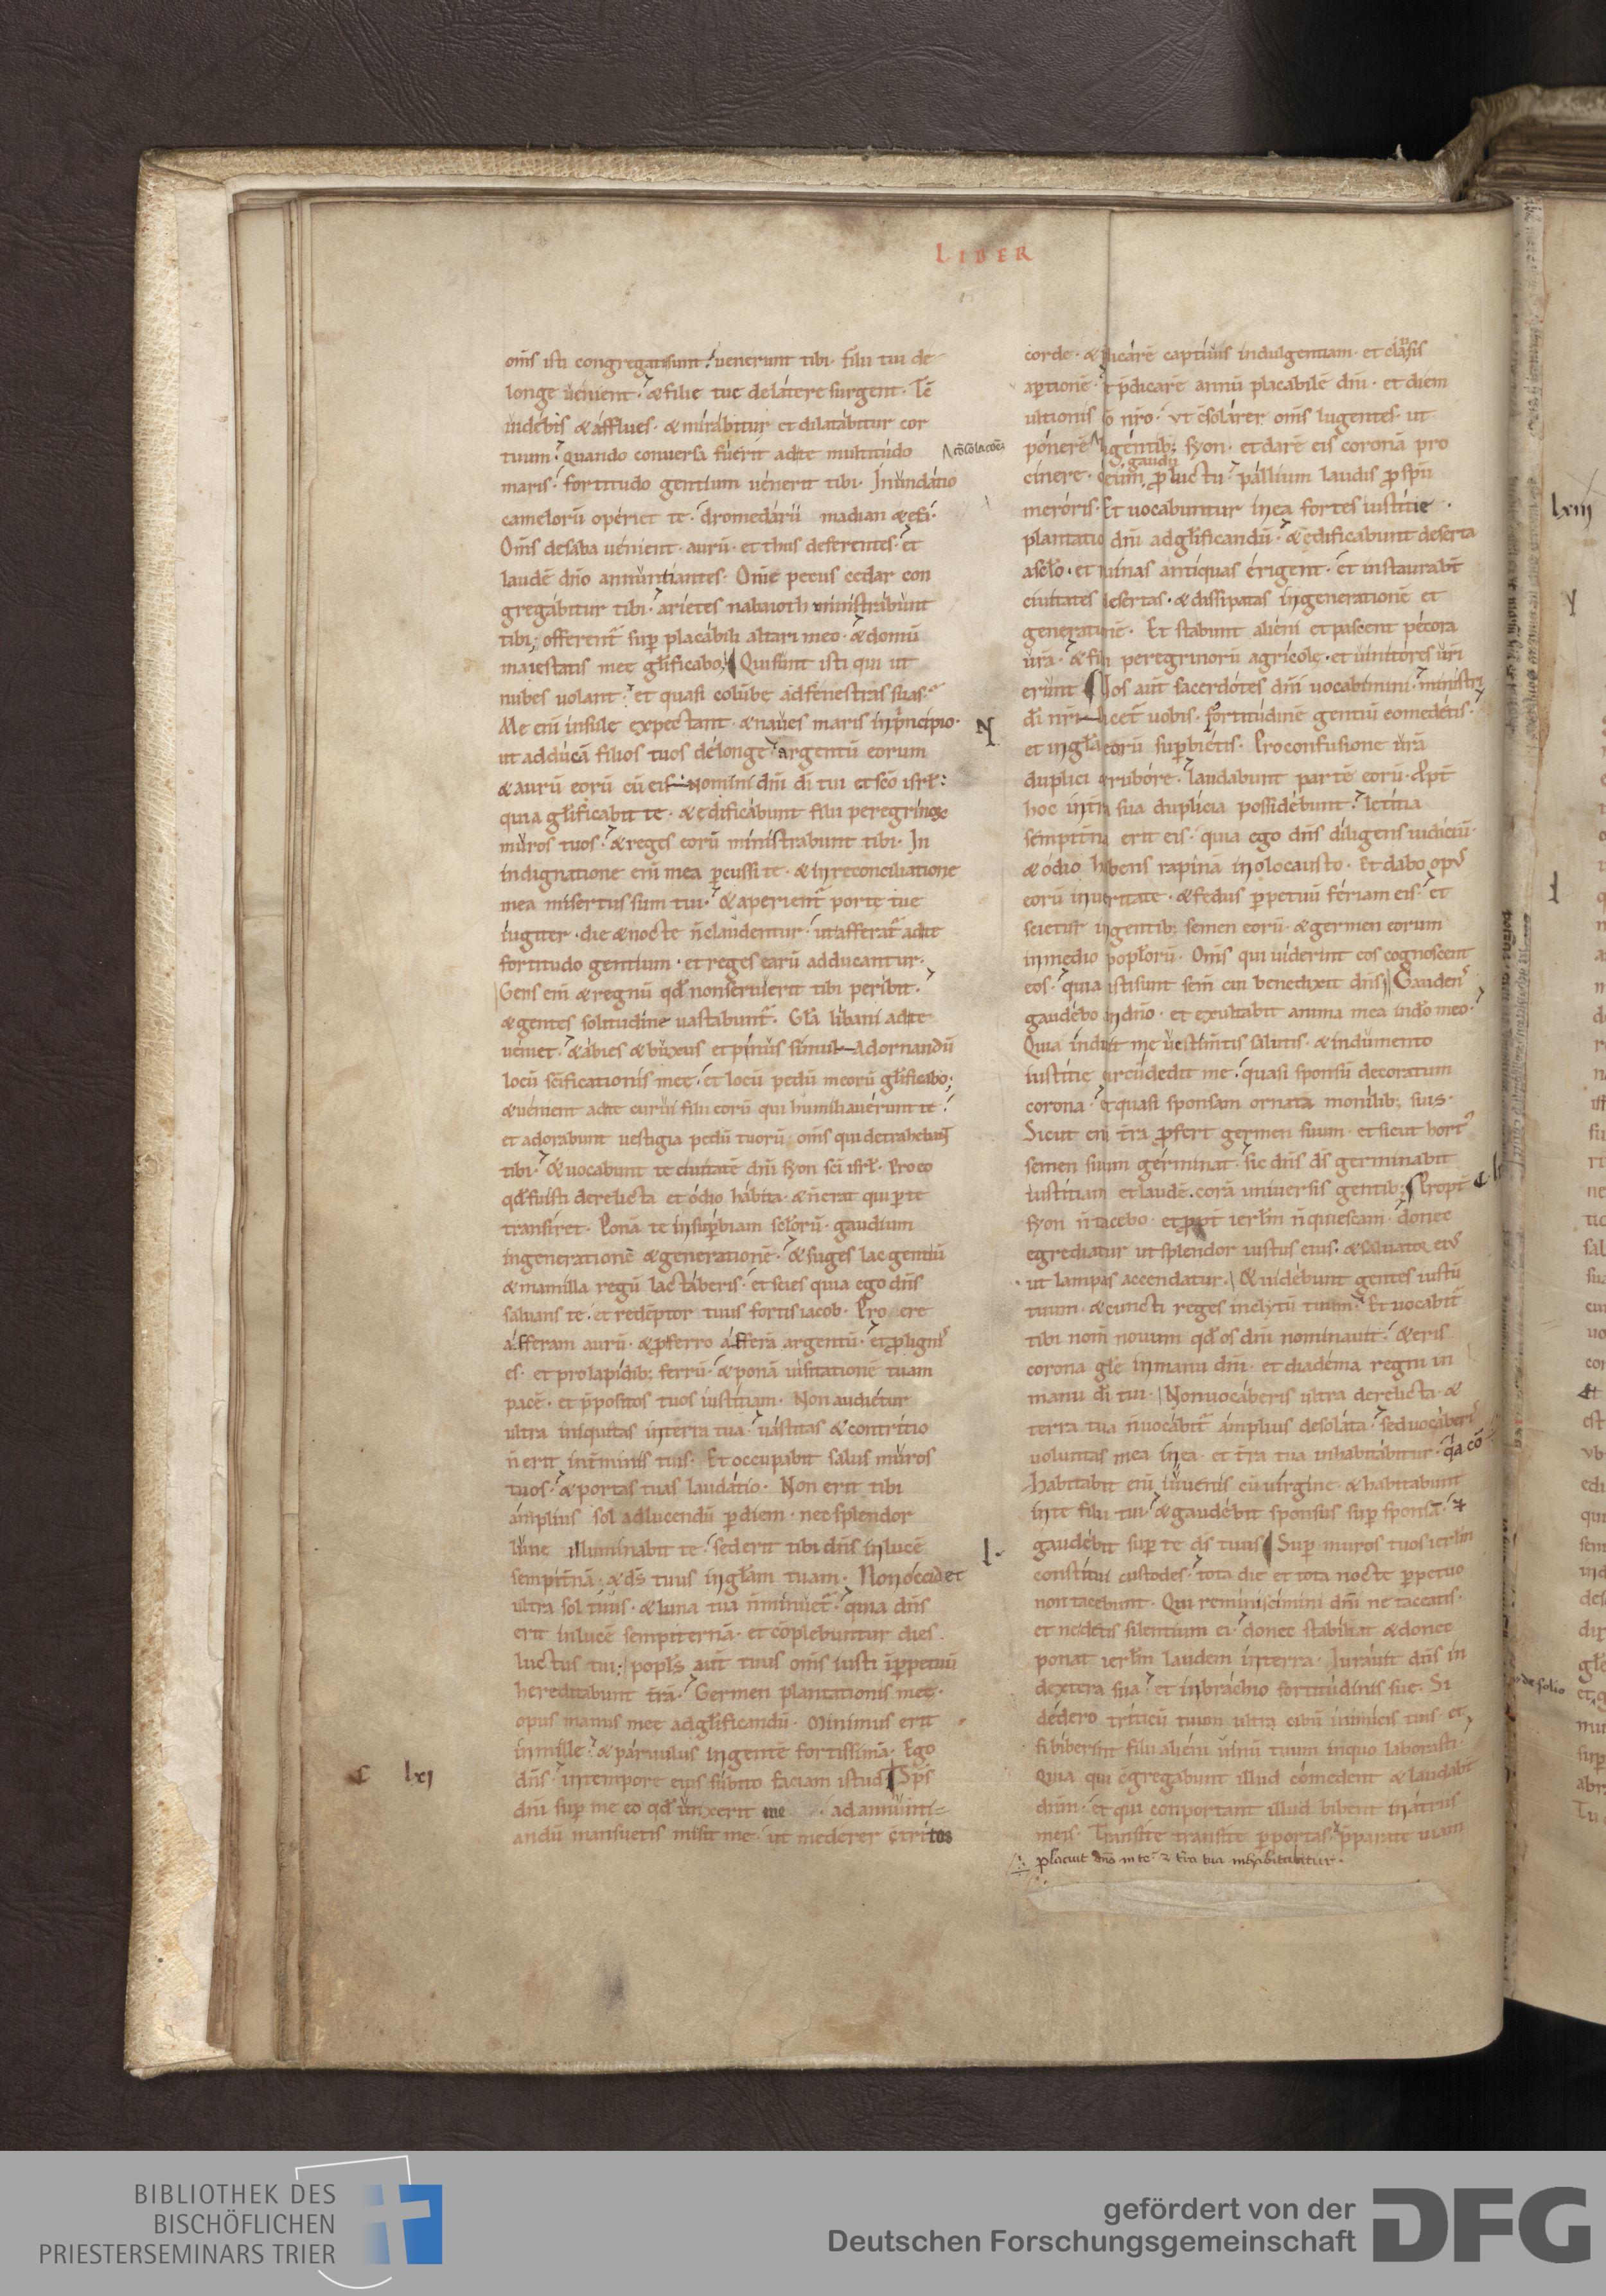 LIBER
om̄s isti congregatisunt. uenerunt tibi. filii tui de
longe uenient. & filie tue delatere surgent. Tē
uidebis & afflues. & mirabitur et dilatabitur cor
tuum. quando conuersa fuerit adte multitudo
maris. fortitudo gentium uenerit tibi. Inundatio
camelorū operiet te. dromedarii madian & efa.
Om̄s desaba uenient. aurū. et thus deferentes. et
laudē dn̄o annuntiantes. Om̄e pecus cedar con
gregabitur tibi. arietes nabaioth ministrabunt
tibi; offerent̄ sup placabili altari meo. & domū
maiestatis meę gl̄ificabo. Qui sunt isti qui ut
nubes uolant. et quasi colūbę adfenestras suas.
Me enī insulę expectant. & naues maris inprincipio.
ut adducā filios tuos delonge. argentū eorum
& aurū eorū cū eis. Nomini dn̄i dī tui et sc̄o isrl̄.
quia gl̄ificabit te. & ędificabunt filii peregrinoꝝ
muros tuos. & reges eorū ministrabunt tibi. In
indignatione enī mea percussi te. & inreconciliatione
mea misertus sum tui. & aperient̄ portę tuę
iugiter. die & nocte n̄ claudentur. ut afferat̄ adte
fortitudo gentium. et reges earū adducantur.
Gens enī & regnū qd̄ nonseruierit tibi peribit.
& gentes solitudine uastabunt̄. Gl̄a libani adte
ueniet. & abies & buxus et pinus simul adornandū
locū sc̄ificationis meę. et locū pedū meorū gl̄ificabo;
& uenient adte curui filii eorū qui humiliauerunt te.
et adorabunt uestigia pedū tuorū om̄s qui detrahebant
tibi. & uocabunt te ciuitatē dn̄i syon sc̄i isrl̄. Pro eo
qd̄ fuisti derelicta et odio habita. & n̄ erat qui p te
transiret. Ponā te insupbiam sclorū. gaudium
ingenerationē & generationē. & suges lac gentiū
& mamilla regū lactaberis. et scies quia ego dn̄s
saluans te. et redēptor tuus fortis iacob. Pro ere
afferam aurū. & pferro afferā argentū. et p lignis
es. et prolapidib; ferrū. & ponā uisitationē tuam
pacē. et p̄positos tuos iustitiam. Non audietur
ultra iniquitas interra tua. uastitas & contritio
n̄ erit int̄minis tuis. Et occupabit salus muros
tuos. & portas tuas laudatio. Non erit tibi
amplius sol adlucendū pdiem. nec splendor
lunę illuminabit te. sed erit tibi dn̄s inlucē
sempit̄nā. & ds̄ tuus inglā̄m tuam. Non occidet
ultra sol tuus. & luna tua n̄ minuet̄. quia dn̄s
erit inlucē sempiternā. et cōplebuntur dies
luctus tui; popl̄s aut̄ tuus om̄s iusti inperpetuū
hereditabunt t̄rā. Germen plantationis meę.
opus manus meę adgl̄ificandū. Minimus erit
inmille. & paruulus ingentē fortissimā. Ego
C lxj
dn̄s intempore eius subito faciam istud. Sp̄s
dn̄i sup me eo qd̄ unxerit me ad annunti
andū mansuetis misit me. ut mederer c̄tritos
corde. & p̄dicarē captiuis indulgentiam. et clausis
apertionē. et p̄dicarē annū placabilē dn̄i. et diem
ultionis dō nr̄o. ut c̄solarer om̄s lugentes. ut
ponerē c̄solationē lugentib; syon. et darē eis coronā pro
cinere. oleum gaudii p luctu. pallium laudis p spū
meroris. Et uocabuntur inea fortes iustitię.
plantatio dn̄i adgl̄ificandū. & ędificabunt deserta
aseclo. et ruinas antiquas erigent. et instaurabt̄
ciuitates desertas. & dissipatas ingenerationē et
generationē. Et stabunt alieni et pascent pecora
ur̄a. & filii peregrinorū agricolę. et uinitores ur̄i
erunt. Uos aut̄ sacerdotes dn̄i uocabimini. ministri
dī nr̄i dicet̄ uobis. fortitudinē gentiū comedetis.
et inglā̄ eorū supbietis. Pro confusione ur̄a
duplici & rubore. laudabunt partē eorū. Ppt̄
hoc int̄ra sua duplicia possidebunt. lętitia
sempit̄na erit eis. quia ego dn̄s diligens iudiciū
& odio habens rapinā inolocausto. Et dabo opus
eorū inueritate. & fedus ppetuū feriam eis. et
scietur ingentib; semen eorū. & germen eorum
inmedio poplorū. Om̄s qui uiderint eos cognoscent
eos. quia isti sunt sem̄ cui benedixit dn̄s. Gaudens
gaudebo indn̄o. et exultabit anima mea indō meo.
Quia induit me uestim̄tis salutis. & indumento
iustitię circūdedit me. quasi sponsū decoratum
corona. et quasi sponsam ornatā monilib; suis.
Sicut enī t̄ra pfert germen suum. et sicut hortus
semen suum germinat. sic dn̄s ds̄ germinabit
iustitiam et laudē. corā uniuersis gentib; Propt̄
syon n̄ tacebo. et ppt̄ ierl̄m n̄ quiescam. donec
egrediatur ut splendor iustus eius. & saluator eius
ut lampas accendatur. & uidebunt gentes iustū
tuum. & cuncti reges inclytū tuum. Et uocabit̄
tibi nom̄ nouum qd̄ os dn̄i nominauit. & eris
corona glę inmanu dn̄i. et diadema regni in
manu dī tui. Nonuocaberis ultra derelicta. &
terra tua n̄ uocabit̄ amplius desolata. sed uocaberis
uoluntas mea inea. et t̄ra tua inhabitabitur. q̇a cō
habitabit enī iuuenis cū uirgine. & habitabunt
inte filii tui. & gaudebit sponsus sup sponsā. &
gaudebit sup te ds̄ tuus. Sup muros tuos ierl̄m
constitui custodes. tota die et tota nocte ppetuo
non tacebunt. Qui reminiscimini dn̄i ne taceatis.
et ne detis silentium ei. donec stabiliat & donec
ponat ierl̄m laudem interra. Iurauit dn̄s in
dextera sua. et inbrachio fortitudinis suę. Si
dedero triticū tuum ultra cibū inimicis tuis. et
si biberint filii alieni uinū tuum inquo laborasti.
Quia qui c̄gregabunt illud comedent & laudabt̄
dnm̄. et qui conportant illud bibent inatriis
meis. Transite transite pportas. p̄parate uiam
placuit dn̄o in te. & t̄ra tua inhabitabitur.
lxiij
de solio
BIBLIOTHEK DES
BISCHÖFLICHEN
PRIESTERSEMINARS TRIER
gefördert von der
Deutschen Forschungsgemeinschaft
DFG